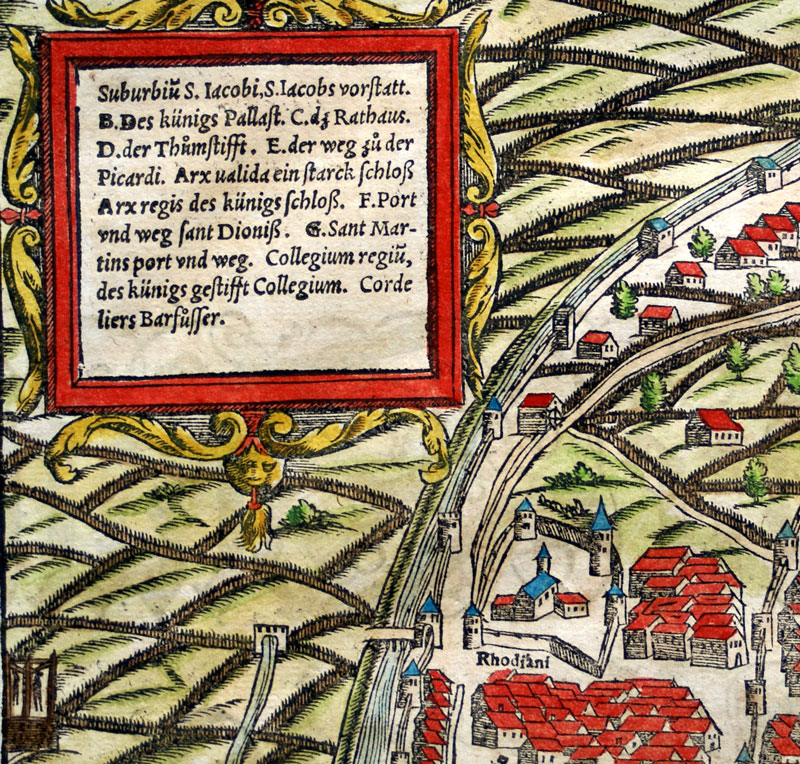 Suburbiū S. Iacobi, S. Iacobs vorstatt.
B. Des künigs Pallast. C. dz Rathaus.
D. der Thůmstifft. E. der weg zů der
Picardi. Arx ualida ein starck schloß
Arx regis des künigs schloß. F. Port
vnd weg sant Dioniß. G. Sant Mar-
tins port vnd weg. Collegium regiū,
des künigs gestifft Collegium. Corde
liers Barfůsser.
Rhodiani